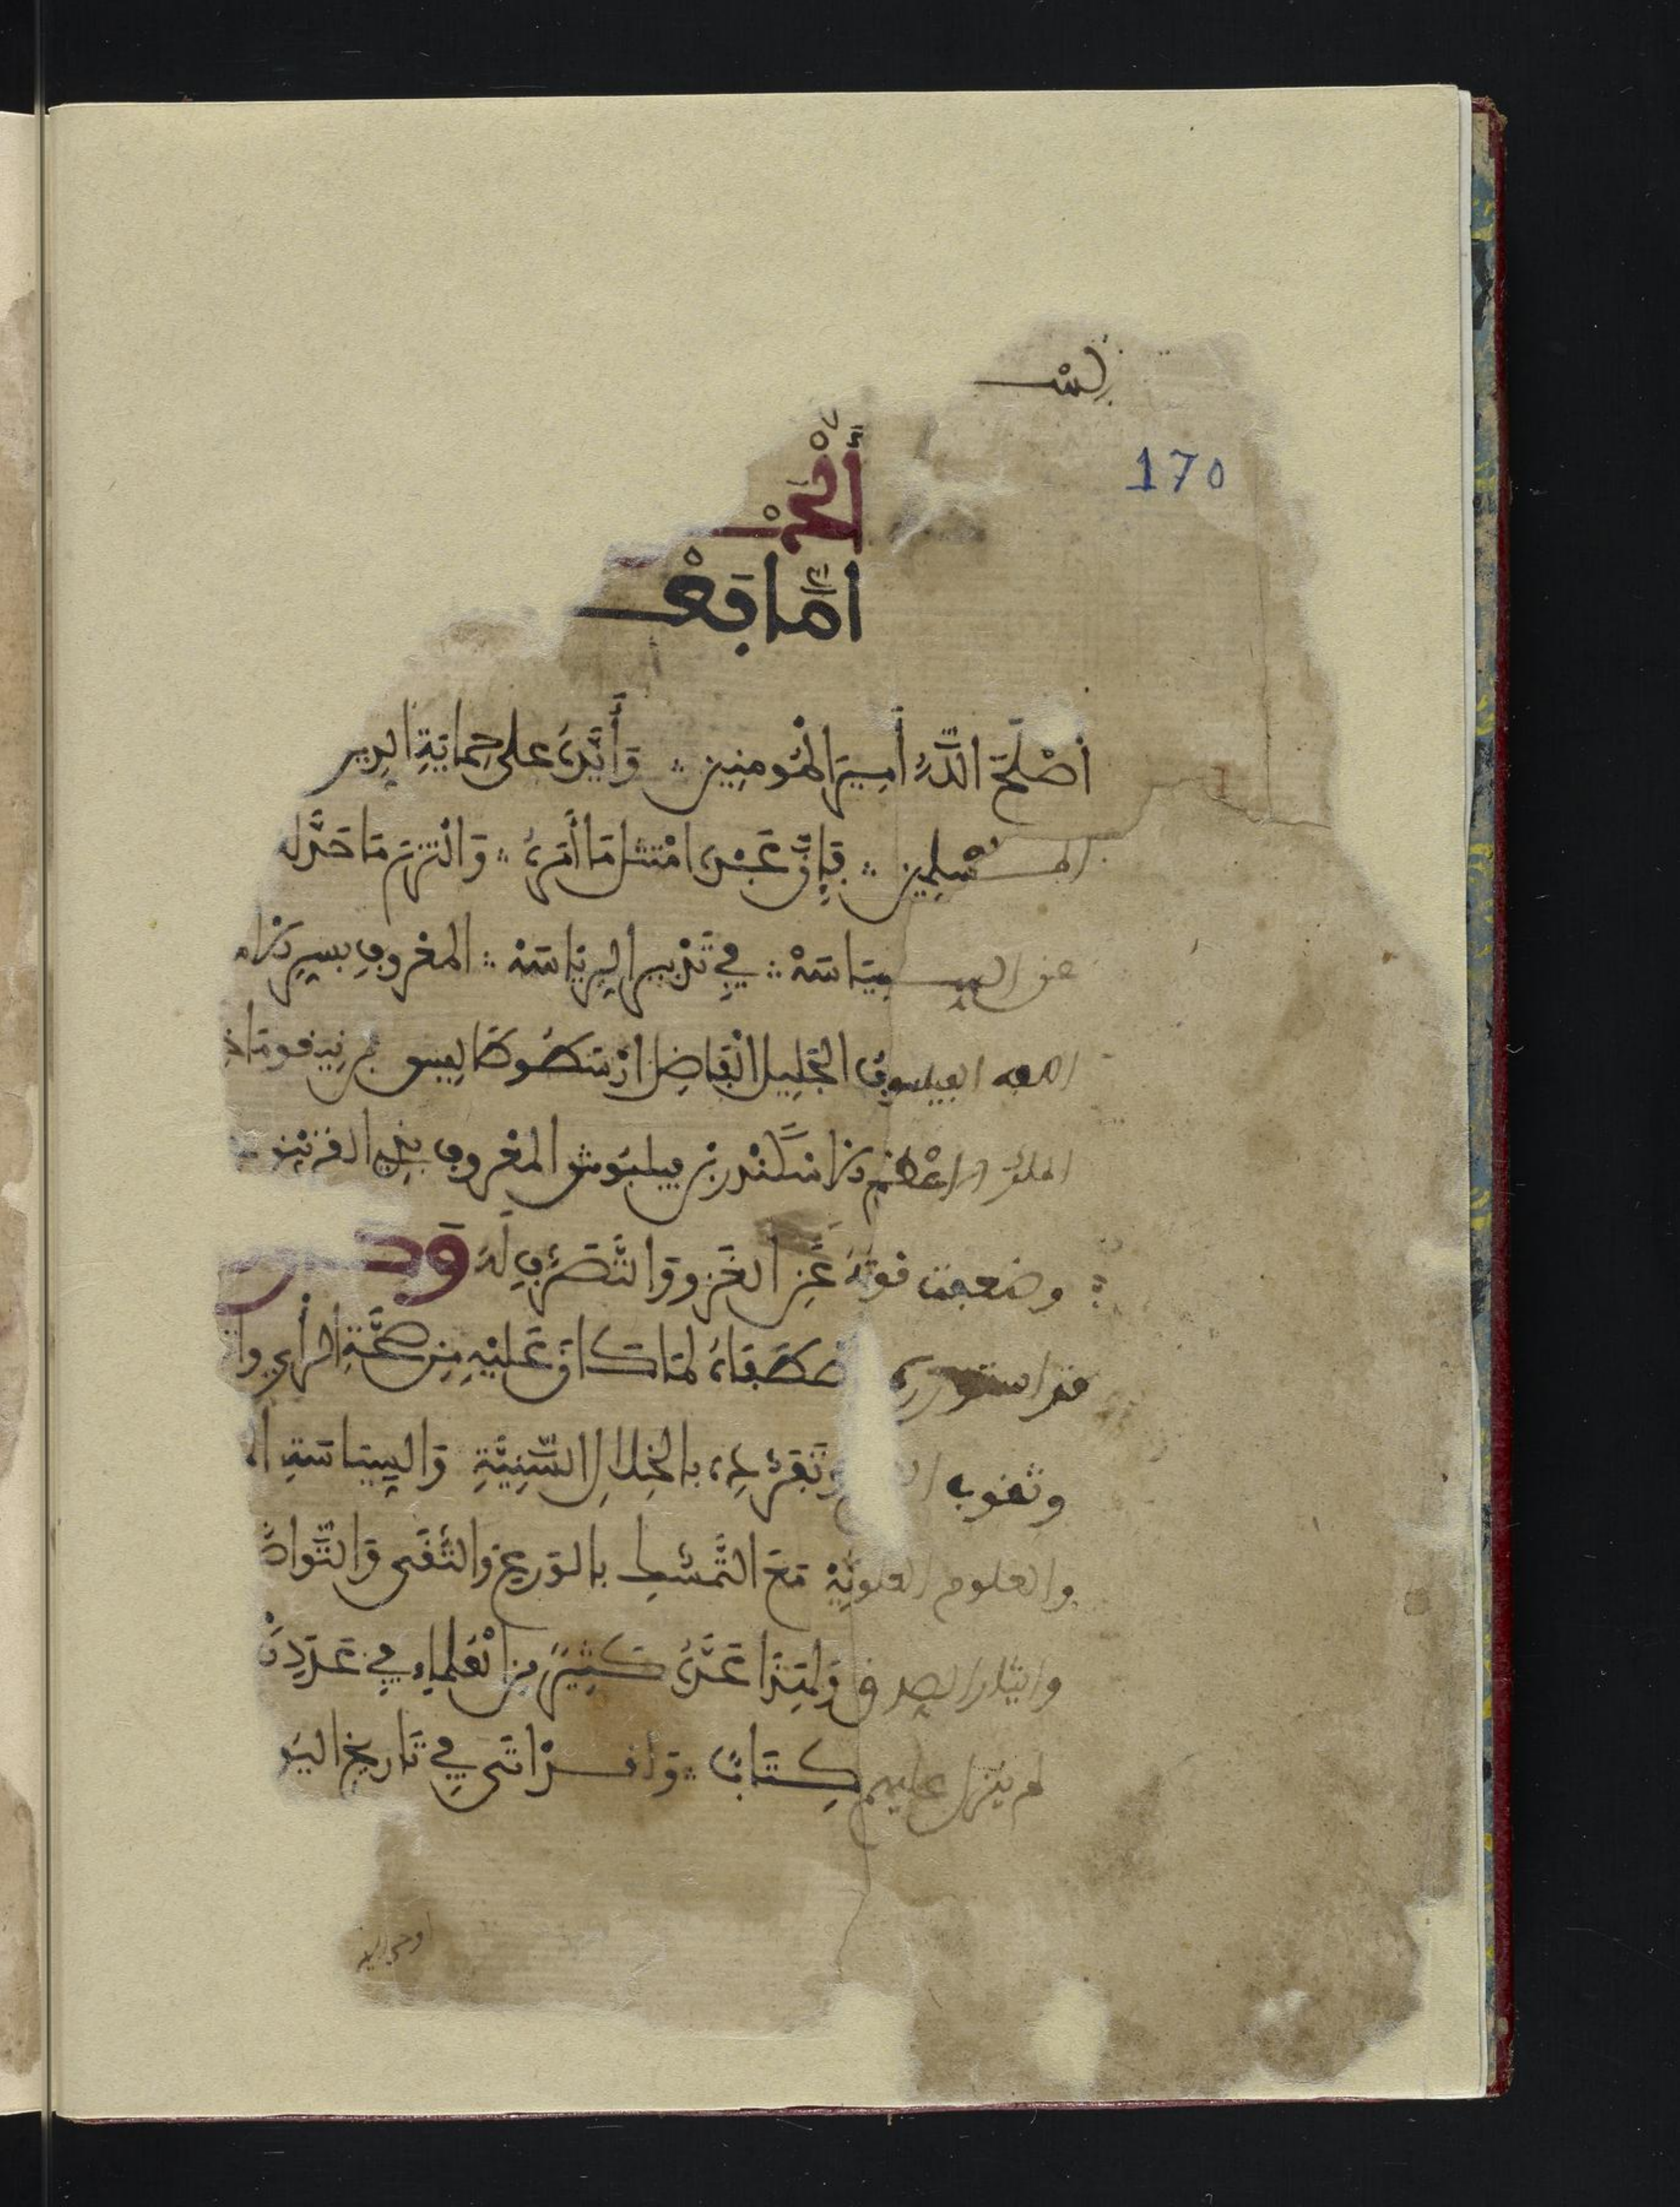 بِسْـ
170
الحَمْـ
أَمَّا بَعْـ
أصْلَحَ اللّٰهُ أَمِيرَ الْمُومنِين ؞ وَأَيَّدَهُ على حِمَايَةِ الدِين
المـسْلِمِين ؞ فإِنَّ عَبْدَه امْتثل مَا أَمَرَهُ ؞ وَانْتهى مَا حَدَّ له
عن السِيَاسَةْ ؞ فِي تَدْبِير الرِيَاسَةْ ؞ المعْروفِ بسِر
الفيلسوفُ الجَلِيل الْفَاضِل ارسْطُوطَالِيس بن نيقومَاخ
الملك الاعْظم اسْكَنْدر بن فيلبُوس المعْروفِ بذي القرنين
وضعفت قوته عَنِ الغَزو وَالتَّصَرُّفِ لَهُ وَكـ
قد استوزره اصْطَفَاهُ لمَا كَانَ عَلَيْهِ مِن صِحَّةِ الرأْيِ وا
وثقوب وتَفَرُّدِه بالخِلالِ السَّنِيَّةِ وَالسِيَاسَةِ ا
والعلوم العلوِيَّةْ مَعَ التَّمَسُّكِ بالوَرع والتُّقَى وَالتَّواضُ
وايثار الصدق وَلهَذَا عَدَّهُ كَثِيرٌ مِن الْعُلماءِ فِي عَدَدِ
لم ينزل عليهم كِتَابٌ ؞ وَلقـدْ اتَى فِي تَاريخ اليو
اوحى اليه